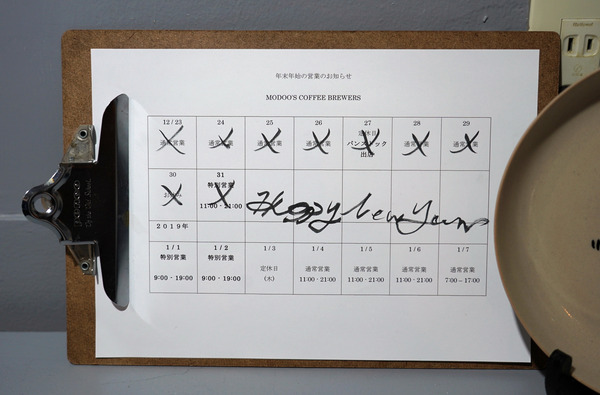 年末年始の営業のお知らせ
MODOO'S COFFEE BREWERS
12/23 24 25 26 27 28 29
通常営業 通常営業 通常営業 通常営業 定休日 通常営業 通常営業
出店
30 31
お休み 特別営業
11:00 - 21:00
Happy New Year
2019年
1/1 1/2 1/3 1/4 1/5 1/6 1/7
特別営業 特別営業 定休日 通常営業 通常営業 通常営業 通常営業
9:00 - 19:00 9:00 - 19:00 (木) 11:00 - 21:00 11:00 - 21:00 11:00 - 21:00 7:00 – 17:00